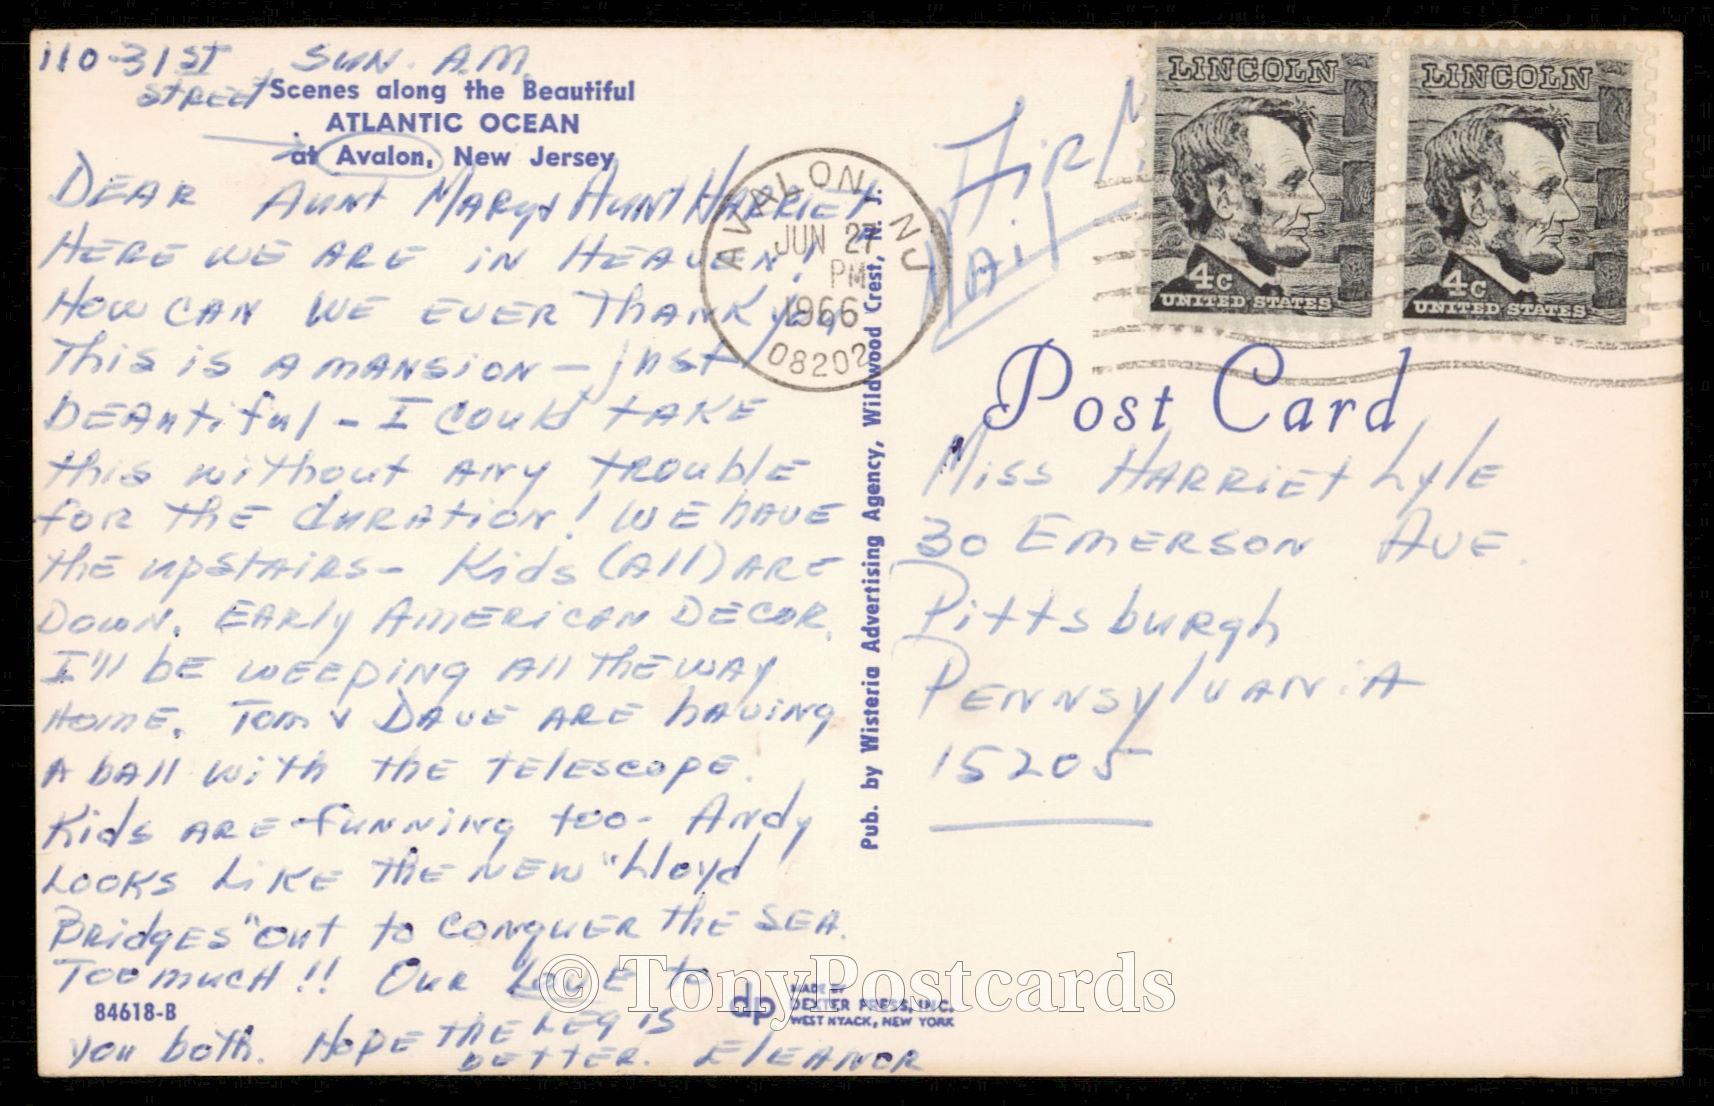 110-31ST SUN. A.M.
STREET
Scenes along the Beautiful
ATLANTIC OCEAN
at Avalon, New Jersey
DEAR AUNT MARY & AUNT HARRIET
HERE WE ARE IN HEAVEN!
HOW CAN WE EVER THANK you
This is A MANSION - just
BEAUTIFUL - I COULD TAKE
this without ANY TROUBLE
for the duration! WE have
the upstairs - Kids (All) ARE
DOWN. EARly AMERICAN DECOR.
I'll BE WEEPING All THE WAY
HOME. Tom & DAVE ARE having
A ball with the TELESCOPE.
Kids ARE funning too - Andy
Looks Like the NEW "Lloyd
Bridges" out to CONQUER the SEA.
Too much!! OUR LOVE to
you both. HOPE THE LEG IS
BETTER. ELEANOR
84618-B
dp MADE BY
DEXTER PRESS, INC.
WEST NYACK, NEW YORK
Pub. by Wisteria Advertising Agency, Wildwood Crest, N. J.
AVALON, NJ
JUN 27
PM
1966
08202
Air
Mail
LINCOLN
4c
UNITED STATES
LINCOLN
4c
UNITED STATES
Post Card
Miss HARRIET Lyle
30 EMERSON AVE.
Pittsburgh
PENNSylvANiA
15205
© TonyPostcards